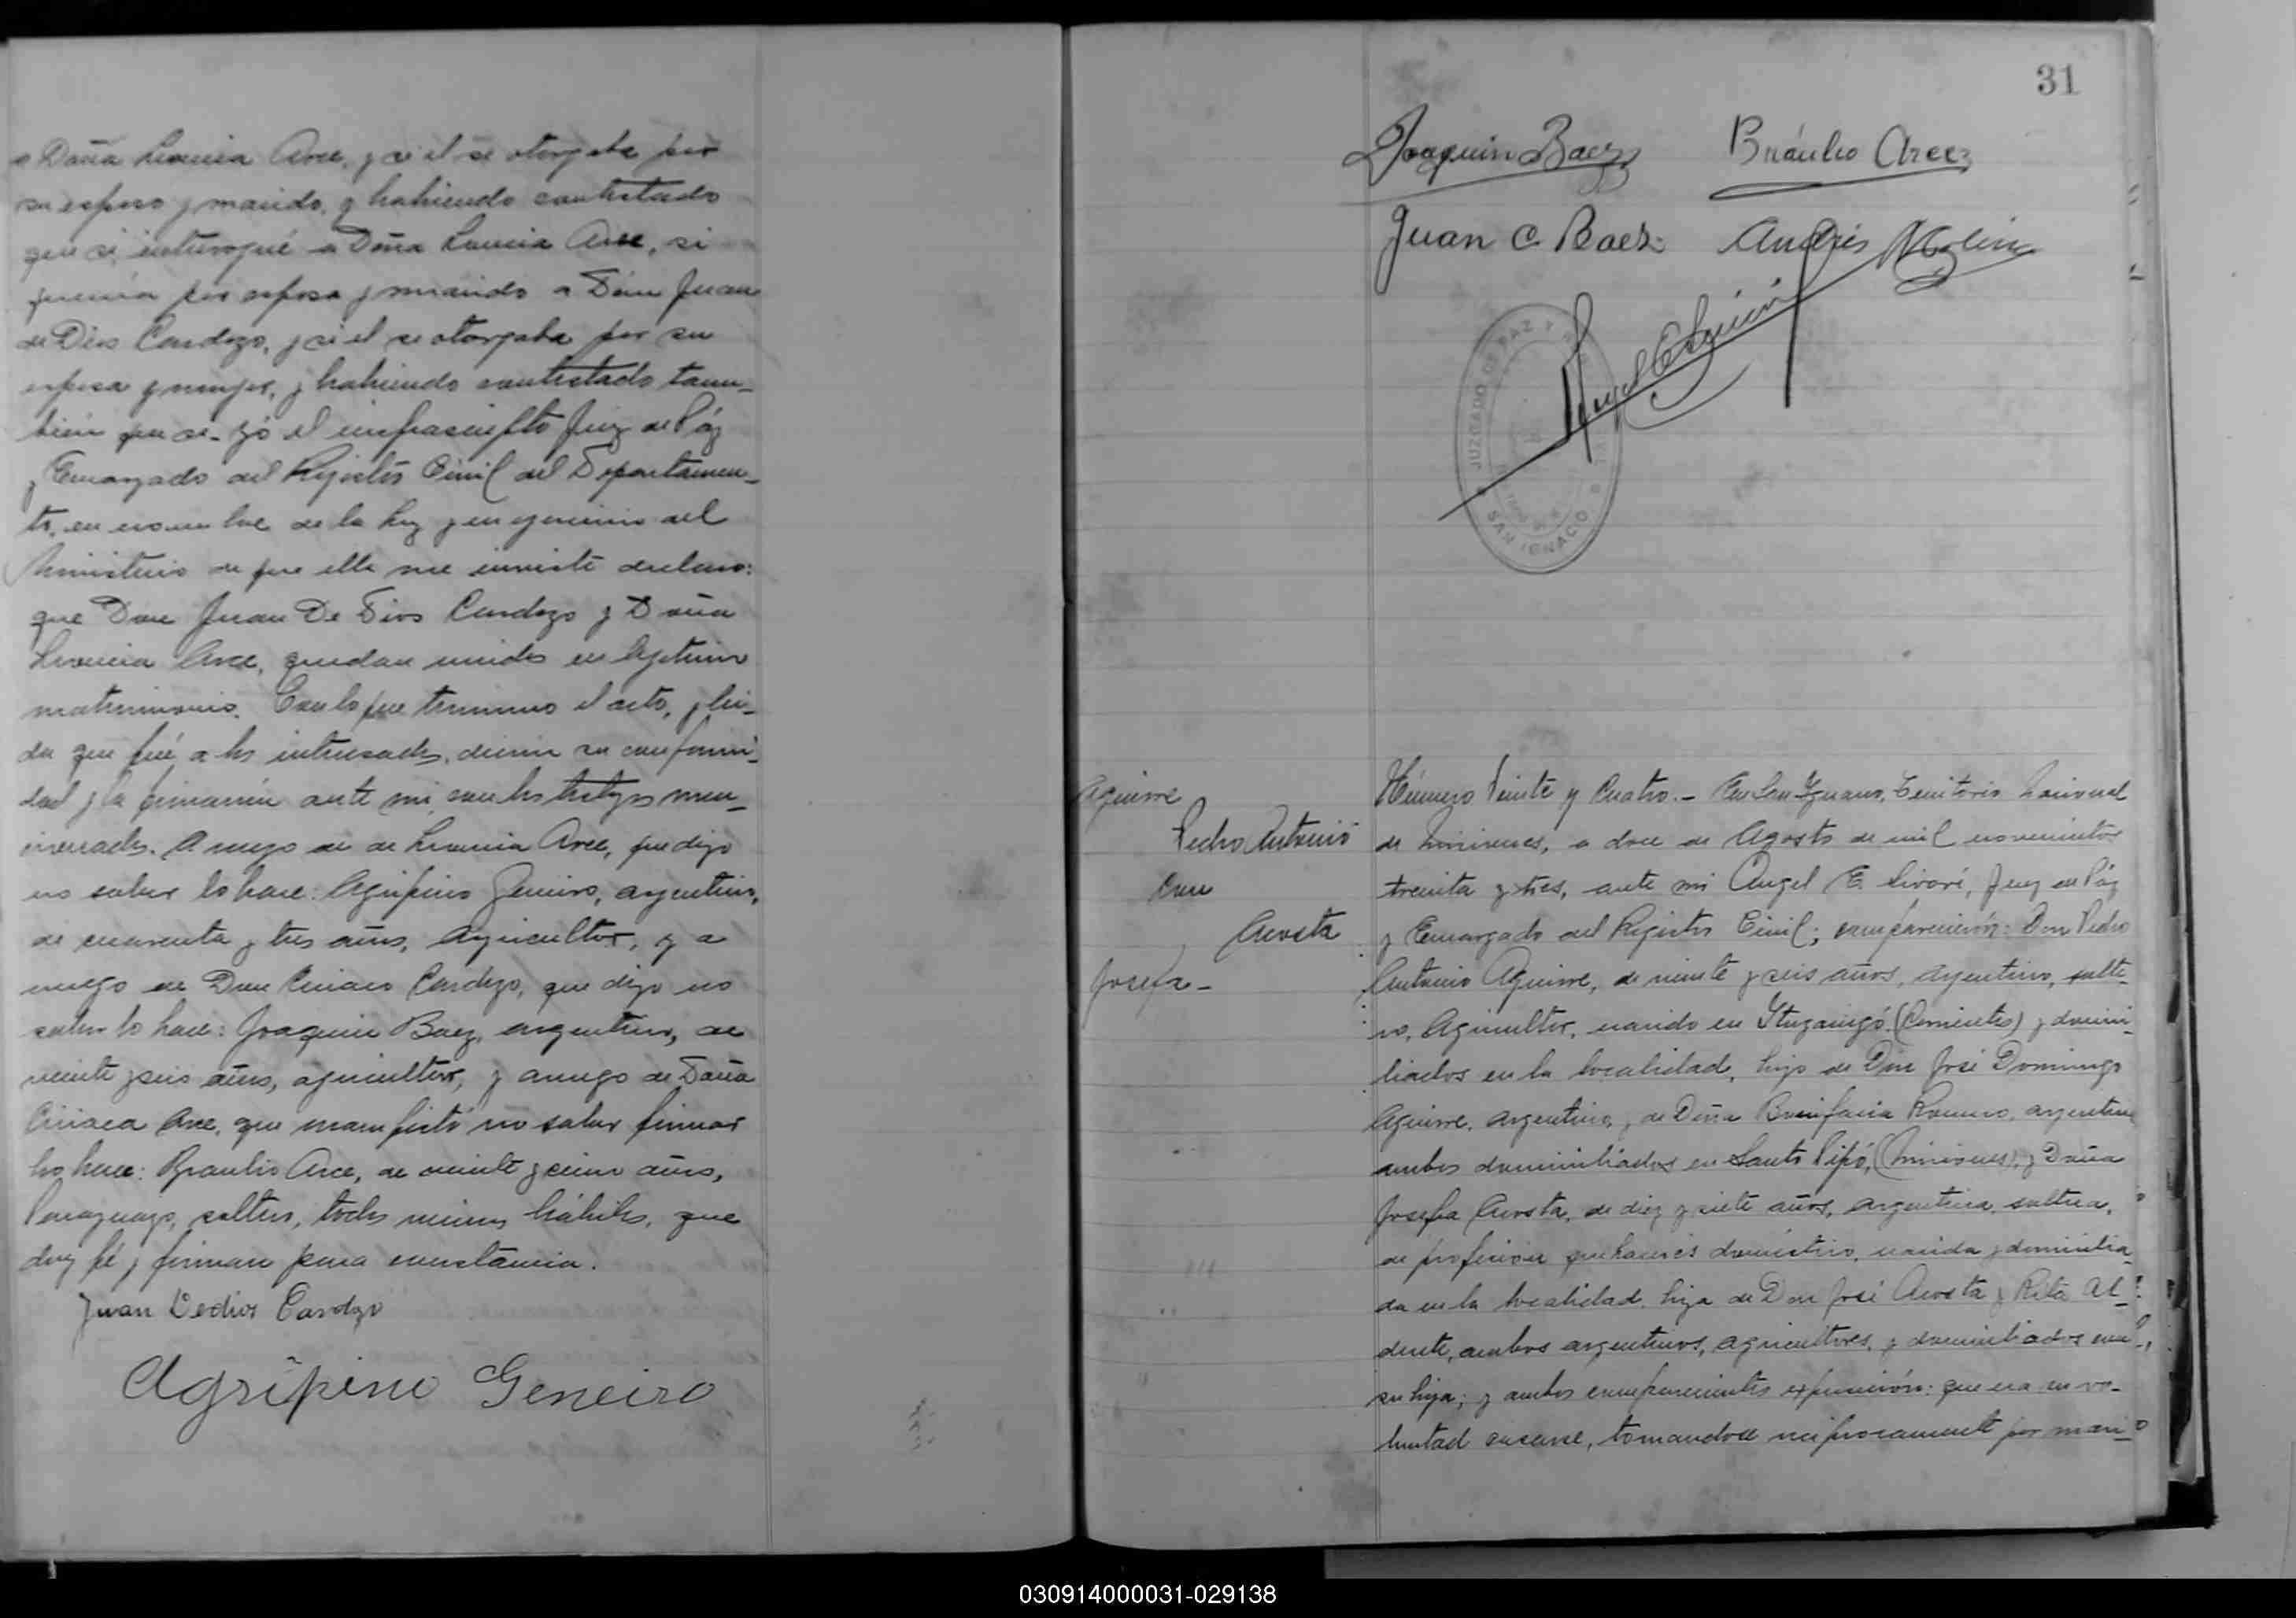 a Doña Leoncia Arce, y si el se otorgaba por
su esposo y marido, y habiendo contestado
que si, interrogué a Doña Leoncia Arce, si
queria por esposo y marido a Don Juan
de Dios Cardozo, y si el se otorgaba por su
esposa y mujer, y habiendo contestado tam_
bien que si_ yó el infrascripto Juez de Páz
y Encargado del Registro Civil del Departamen_
to, en nombre de la ley y en ejercicio del
Ministerio de que ella me inviste declaro:
que Don Juan De Dios Cardozo y Doña
Leoncia Arce, quedan unidos en legitimo
matrimonio. Con lo que termino el acto, y lei_
da que fué a los interesados, dieron su conformi_
dad y la firmarón ante mi, con los testigos men_
cionados. A ruego de de Leoncia Arce, que dijo
no saber lo hace: Agripino Geneiro, argentino,
de cuarenta y tres años, agricultor, y a
ruego de Don Ciriaco Cardozo, que dijo no
saber lo hace: Joaquin Baez, argentino, de
veinte y seis años, agricultor, y a ruego de Doña
Ciriaca Arce, que manifestó no saber firmar
lo hace: Braulio Arce, de veinte y cinco años,
Paraguayo, soltero, todos vecinos hábiles, que
doy fé y firman para constancia.
Juan Dedios Cardozo
Agripino Geneiro
31
Joaquin Baez Bráulio Arce
Juan C. Baez Andrés Molin
Angel E. Livoré
JUZGADO DE PAZ Y
SAN IGNACIO
Aguirre
Pedro Antonio
con
Acosta
Josefa_
Número Veinte y Cuatro._ En San Ignacio, Territorio Nacional
de Misiones, a doce de Agosto de mil novecientos
treinta y tres, ante mi Angel E. Livoré, Juez de Páz
y Encargado del Registro Civil; comparecierón: Don Pedro
Antonio Aguirre, de veinte y seis años, argentino, solte_
ro, Agricultor, nacido en Ituzaingó (Corrientes) y domici_
liados en la localidad, hijo de Don José Domingo
Aguirre, argentino, y de Doña Bonifacia Romero, argentina
ambos domiciliados en Santo Pipó, (Misiones), y Doña
Josefa Acosta, de diez y siete años, argentina, soltera,
de profesion quehaceres domestico, nacida y domicilia_
da en la localidad, hija de Don José Acosta y Rita Al_
dente, ambos argentinos, agricultores, y domiciliados con
su hija; y ambos comparecientes expusierón: que era su vo_
luntad casarse, tomandose reciprocamente por mari_
030914000031-029138